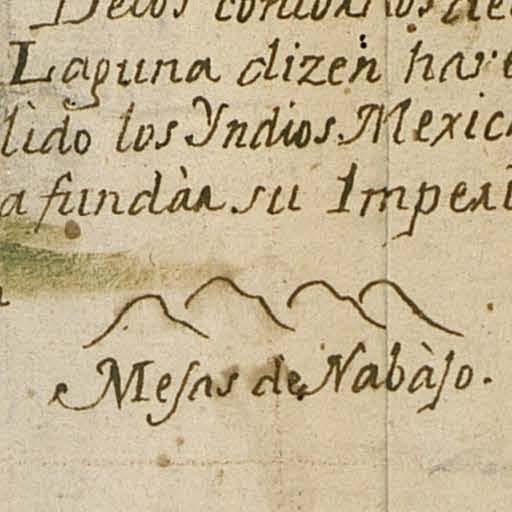 Delos contornos de
Laguna dizen have
lido los Yndios Mexic
a fundàr su Imperi
Mesas de Nabàjo.